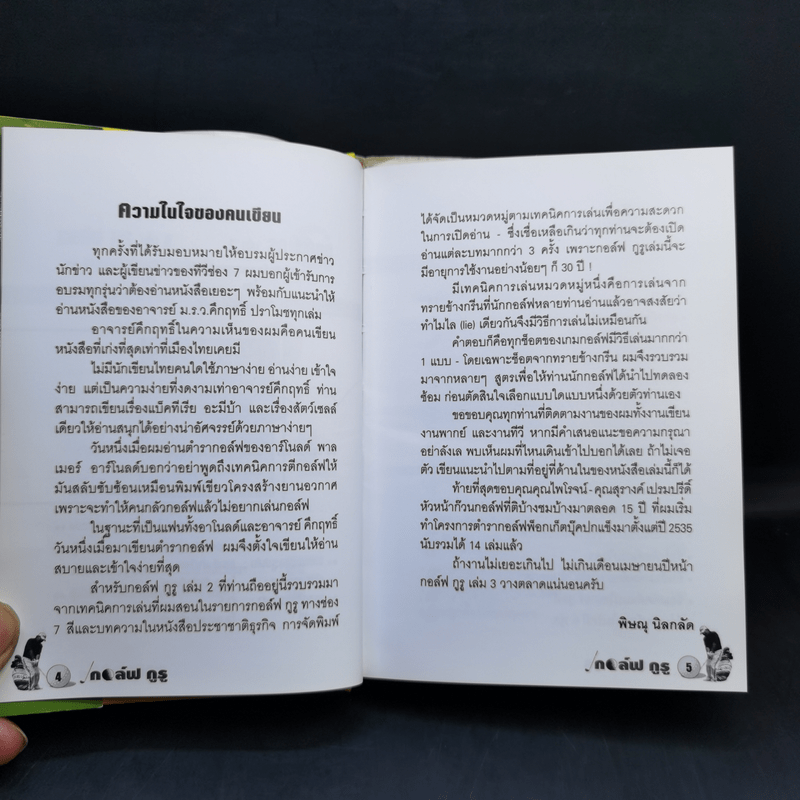 ความในใจของคนเขียน
ทุกครั้งที่ได้รับมอบหมายให้อบรมผู้ประกาศข่าว
นักข่าว และผู้เขียนข่าวของทีวีช่อง 7 ผมบอกผู้เข้ารับการ
อบรมทุกรุ่นว่าต้องอ่านหนังสือเยอะๆ พร้อมกับแนะนำให้
อ่านหนังสือของอาจารย์ ม.ร.ว.คึกฤทธิ์ ปราโมชทุกเล่ม
อาจารย์คึกฤทธิ์ในความเห็นของผมคือคนเขียน
หนังสือที่เก่งที่สุดเท่าที่เมืองไทยเคยมี
ไม่มีนักเขียนไทยคนใดใช้ภาษาง่าย อ่านง่าย เข้าใจ
ง่าย แต่เป็นความง่ายที่งดงามเท่าอาจารย์คึกฤทธิ์ ท่าน
สามารถเขียนเรื่องแบ็คทีเรีย อะมีบ้า และเรื่องสัตว์เซลล์
เดียวให้อ่านสนุกได้อย่างน่าอัศจรรย์ด้วยภาษาง่ายๆ
วันหนึ่งเมื่อผมอ่านตำรากอล์ฟของอาร์โนลด์ พาล
เมอร์ อาร์โนลด์บอกว่าอย่าพูดถึงเทคนิคการตีกอล์ฟให้
มันสลับซับซ้อนเหมือนพิมพ์เขียวโครงสร้างยานอวกาศ
เพราะจะทำให้คนกลัวกอล์ฟแล้วไม่อยากเล่นกอล์ฟ
ในฐานะที่เป็นแฟนทั้งอาโนลด์และอาจารย์ คึกฤทธิ์
วันหนึ่งเมื่อมาเขียนตำรากอล์ฟ ผมจึงตั้งใจเขียนให้อ่าน
สบายและเข้าใจง่ายที่สุด
สำหรับกอล์ฟ กูรู เล่ม 2 ที่ท่านถืออยู่นี้รวบรวมมา
จากเทคนิคการเล่นที่ผมสอนในรายการกอล์ฟ กูรู ทางช่อง
7 สีและบทความในหนังสือประชาชาติธุรกิจ การจัดพิมพ์
4 กอล์ฟ กูรู
ได้จัดเป็นหมวดหมู่ตามเทคนิคการเล่นเพื่อความสะดวก
ในการเปิดอ่าน - ซึ่งเชื่อเหลือเกินว่าทุกท่านจะต้องเปิด
อ่านแต่ละบทมากกว่า 3 ครั้ง เพราะกอล์ฟ กูรูเล่มนี้จะ
มีอายุการใช้งานอย่างน้อยๆ ก็ 30 ปี !
มีเทคนิคการเล่นหมวดหมู่หนึ่งคือการเล่นจาก
ทรายข้างกรีนที่นักกอล์ฟหลายท่านอ่านแล้วอาจสงสัยว่า
ทำไมไล (lie) เดียวกันจึงมีวิธีการเล่นไม่เหมือนกัน
คำตอบก็คือทุกช็อตของเกมกอล์ฟมีวิธีเล่นมากกว่า
1 แบบ - โดยเฉพาะช็อตจากทรายข้างกรีน ผมจึงรวบรวม
มาจากหลายๆ สูตรเพื่อให้ท่านนักกอล์ฟได้นำไปทดลอง
ซ้อม ก่อนตัดสินใจเลือกแบบใดแบบหนึ่งด้วยตัวท่านเอง
ขอขอบคุณทุกท่านที่ติดตามงานของผมทั้งงานเขียน
งานพากย์ และงานทีวี หากมีคำเสนอแนะขอความกรุณา
อย่าลังเล พบเห็นผมที่ไหนเดินเข้าไปบอกได้เลย ถ้าไม่เจอ
ตัว เขียนแนะนำไปตามที่อยู่ที่ด้านในของหนังสือเล่มนี้ก็ได้
ท้ายที่สุดขอบคุณคุณไพโรจน์-คุณสุรางค์ เปรมปรีดิ์
หัวหน้าก๊วนกอล์ฟที่ติบ้างชมบ้างมาตลอด 15 ปี ที่ผมเริ่ม
ทำโครงการตำรากอล์ฟพ็อกเก็ตบุ๊คปกแข็งมาตั้งแต่ปี 2535
นับรวมได้ 14 เล่มแล้ว
ถ้างานไม่เยอะเกินไป ไม่เกินเดือนเมษายนปีหน้า
กอล์ฟ กูรู เล่ม 3 วางตลาดแน่นอนครับ
พิษณุ นิลกลัด
กอล์ฟ กูรู 5